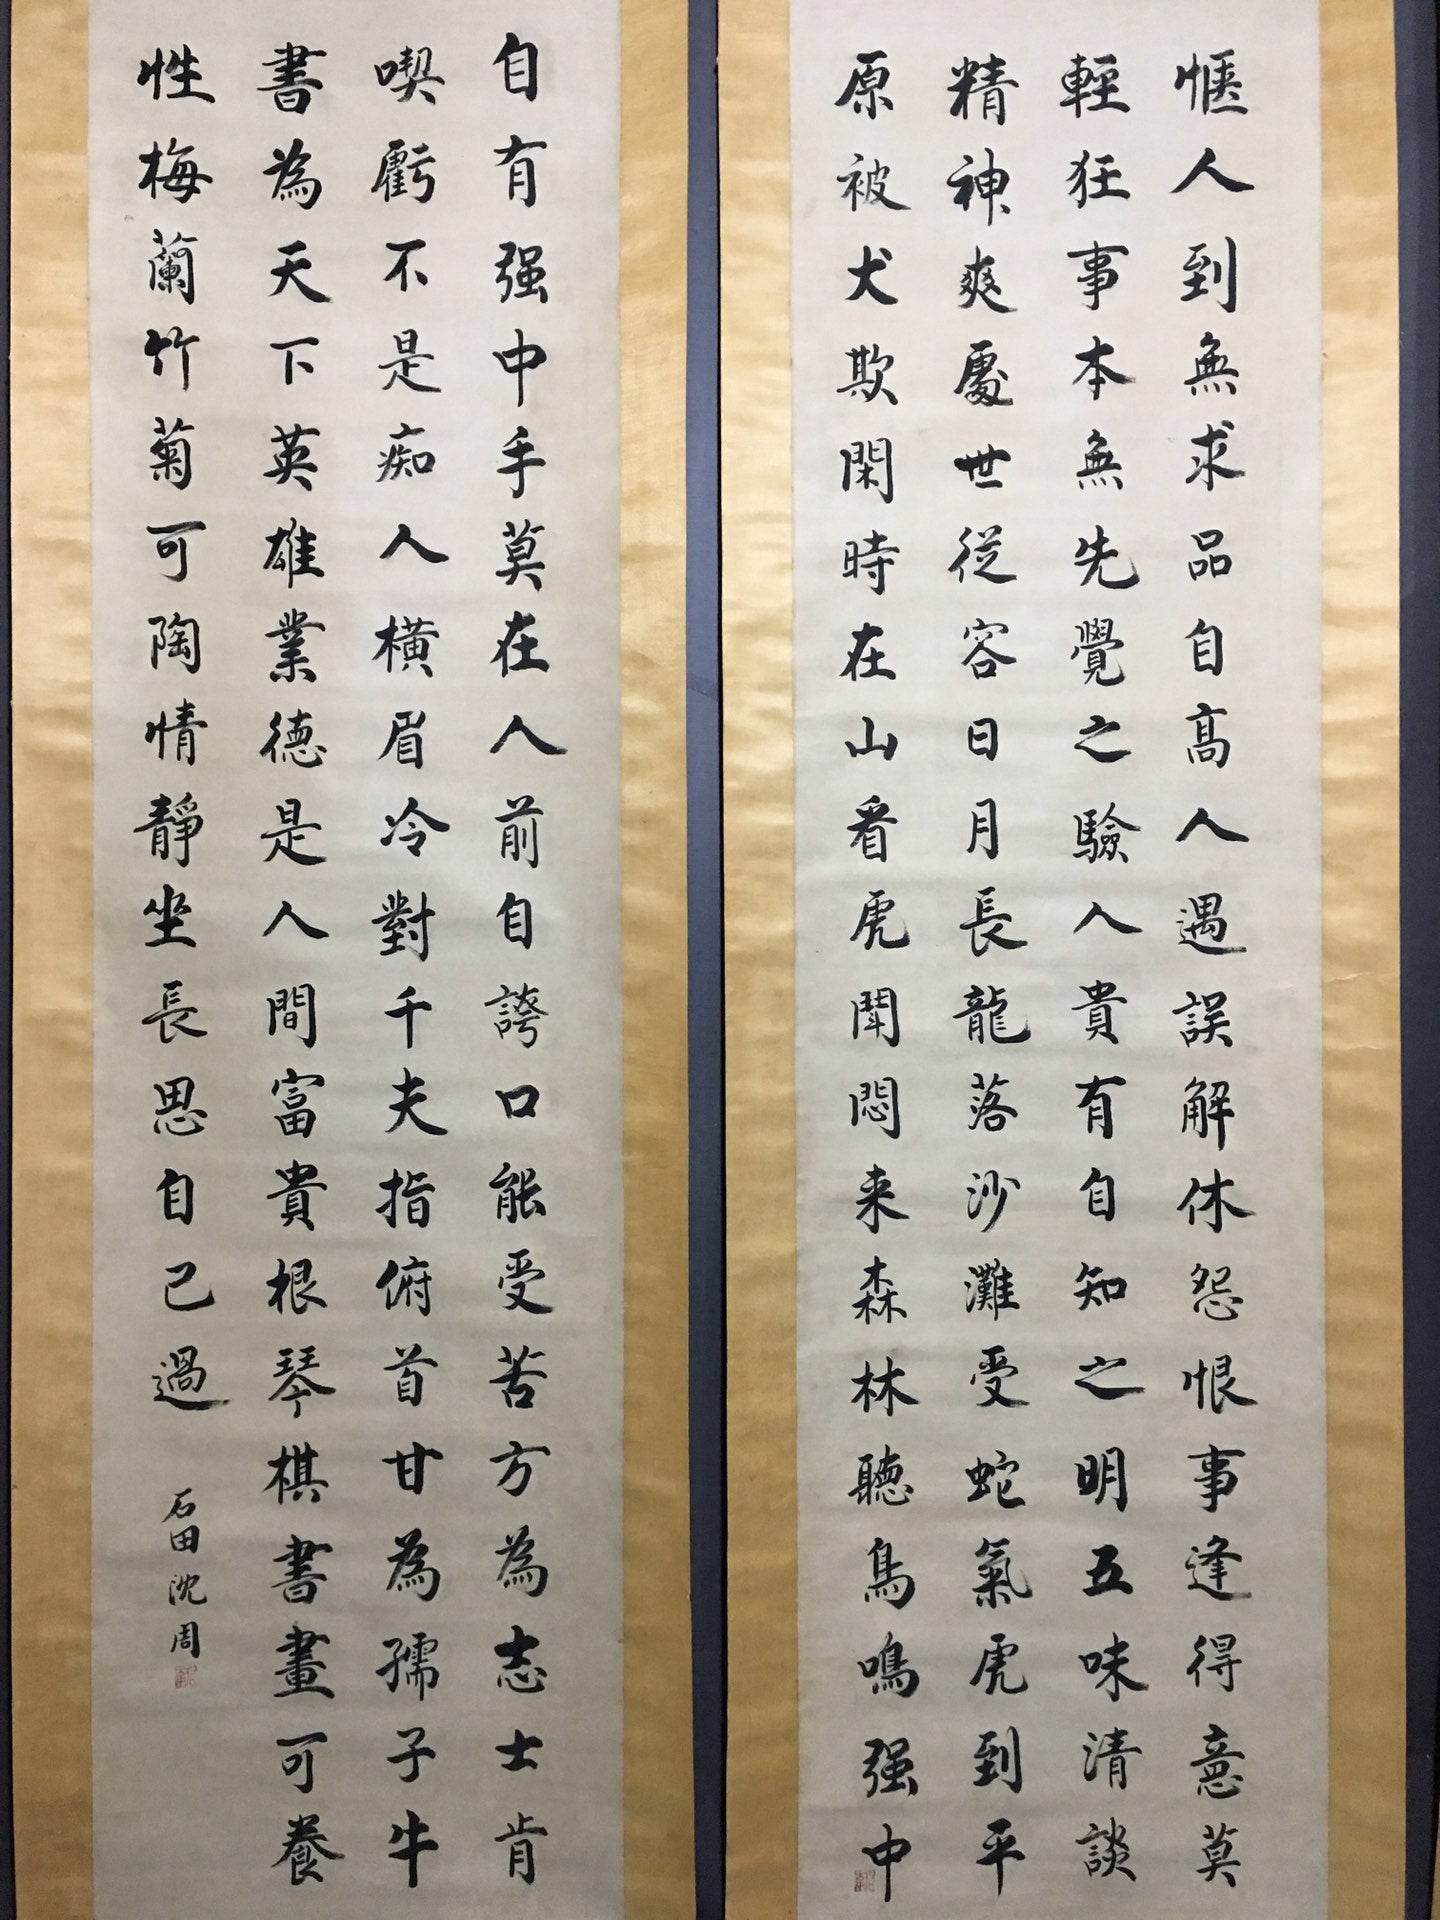 愜人到無求品自高人遇誤解休怨恨事逢得意莫
輕狂事本無先覺之驗人貴有自知之明五味清談
精神爽處世從容日月長龍落沙灘受蛇氣虎到平
原被犬欺閑時在山看虎鬪悶来森林聽鳥鳴强中
自有强中手莫在人前自誇口能受苦方為志士肯
喫虧不是痴人橫眉冷對千夫指俯首甘為孺子牛
書為天下英雄業德是人間富貴根琴棋書畫可養
性梅蘭竹菊可陶情靜坐長思自己過
石田沈周